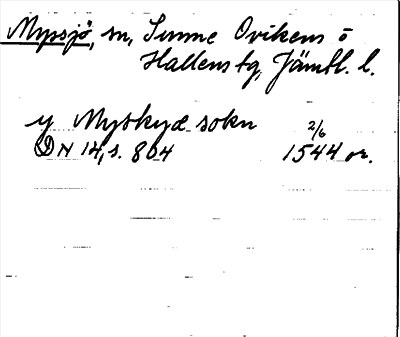 Myssjö, sn, Sunne Ovikens o
Hallens tg, Jämtl. l.
y Myskyæ sokn 2/6
DN 14, s. 804 1544 or.